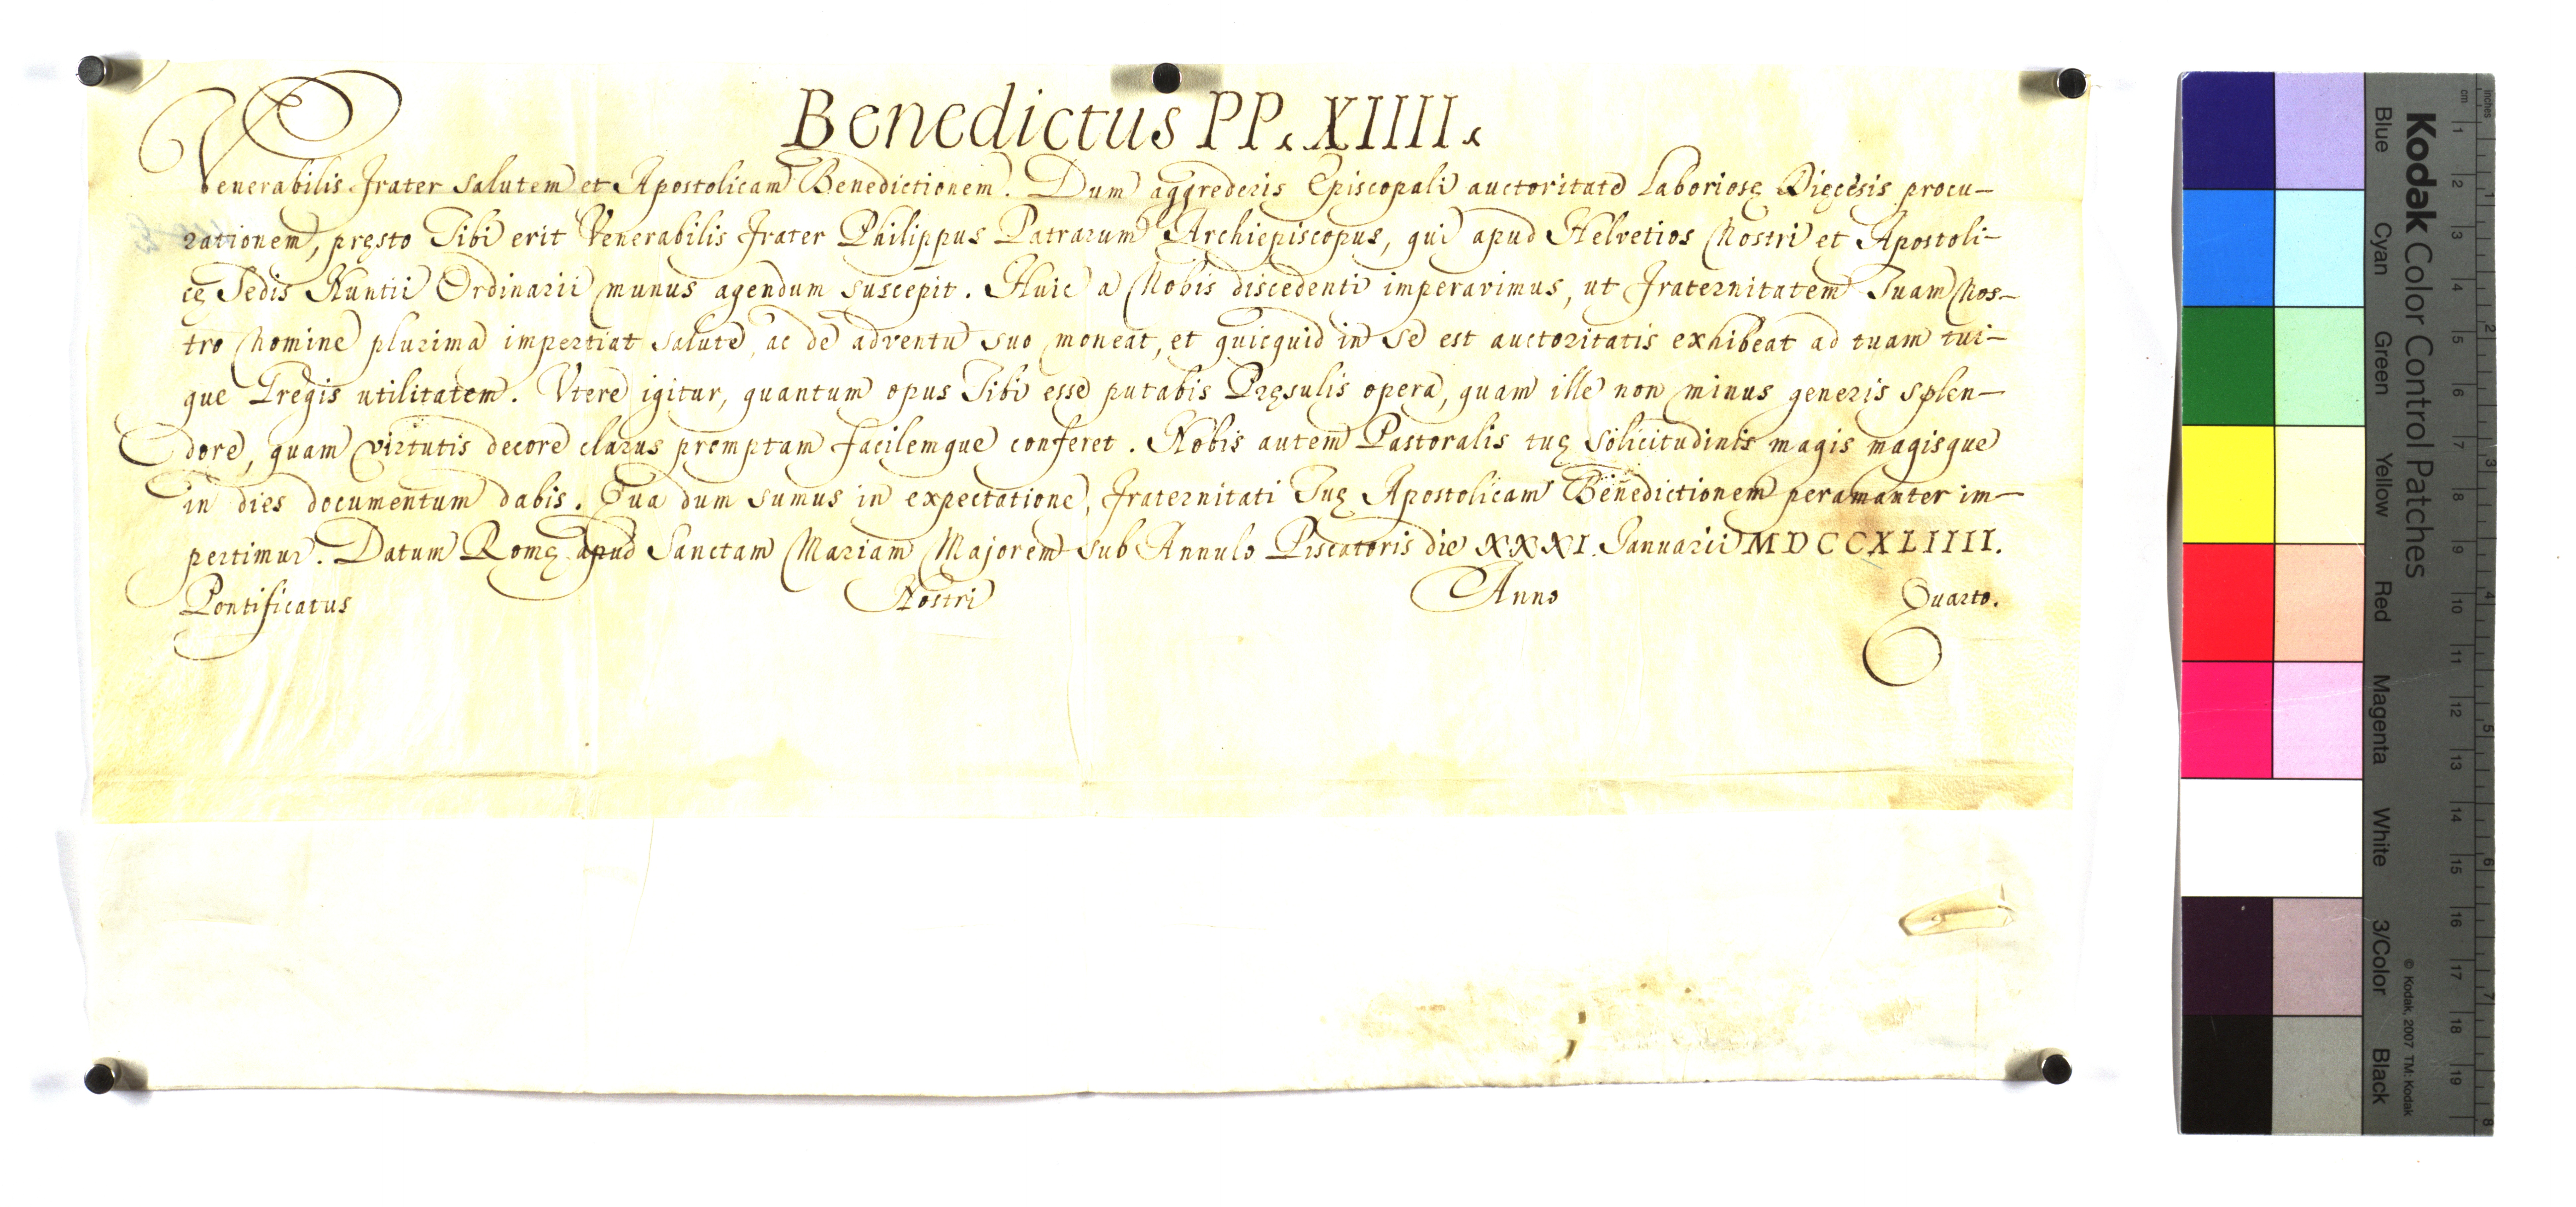 Benedictus PP. XIIII.
Venerabilis Frater Salutem et Apostolicam Benedictionem. Dum aggrederis Episcopali auctoritate Laboriosę Dięcesis procu-
rationem, pręsto Tibi erit Venerabilis Frater Philippus Patrarum Archiepiscopus, qui apud Helvetios Nostri et Apostoli-
cę Sedis Nuntii Ordinarii munus agendum suscepit. Huic a Nobis discedenti imperavimus, ut Fraternitatem Tuam Nos-
tro Nomine plurima impertiat salute, ac de adventu suo moneat, et quicquid in se est auctoritatis exhibeat ad tuam tui-
que Gregis utilitatem. Utere igitur, quantum opus Tibi esse putabis Pręsulis opera, quam ille non minus generis splen-
dore, quam virtutis decore clarus promptam facilemque conferet. Nobis autem Pastoralis tuę solicitudinis magis magisque
in dies documentum dabis. Qua dum sumus in expectatione, Fraternitati Tuę Apostolicam Benedictionem peramanter im-
pertimur. Datum Romę apud Sanctam Mariam Majorem sub Annulo Piscatoris die XXXI. Januarii MDCCXLIIII.
Pontificatus Nostri Anno Quarto.
Kodak Color Control Patches
Blue Cyan Green Yellow Red Magenta White 3/Color Black
© Kodak, 2007 TM: Kodak
cm 1 2 3 4 5 6 7 8 9 10 11 12 13 14 15 16 17 18 19
inches 1 2 3 4 5 6 7 8